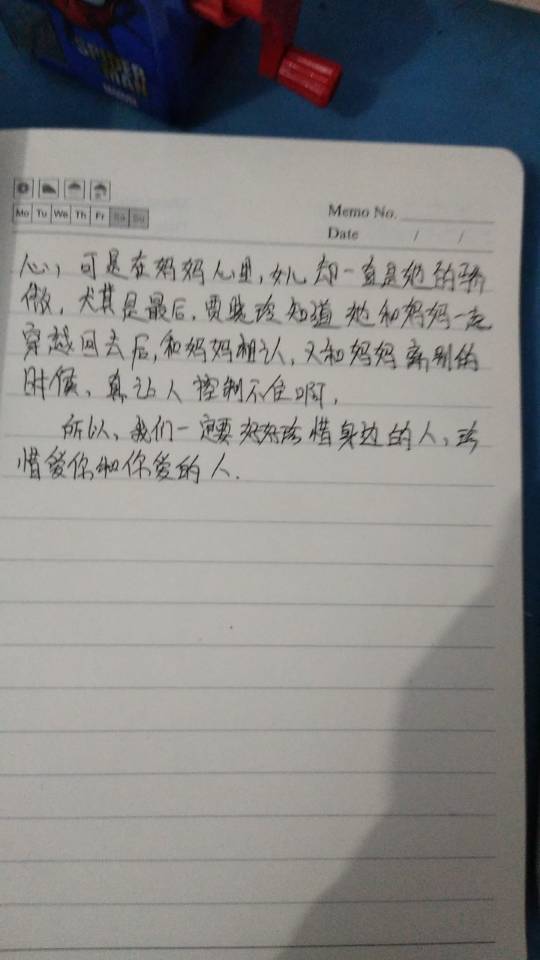 SPIDER
MAN
MARVEL
Mo Tu We Th Fr Sa Su
Memo No.
Date / /
心，可是在妈妈心里，女儿却一直是她的骄
傲，尤其是最后，贾晓玲知道她和妈妈一起
穿越回去后，和妈妈相认，又和妈妈离别的
时候、真让人控制不住啊，
所以、我们一定要好好珍惜身边的人、珍
惜爱你和你爱的人.